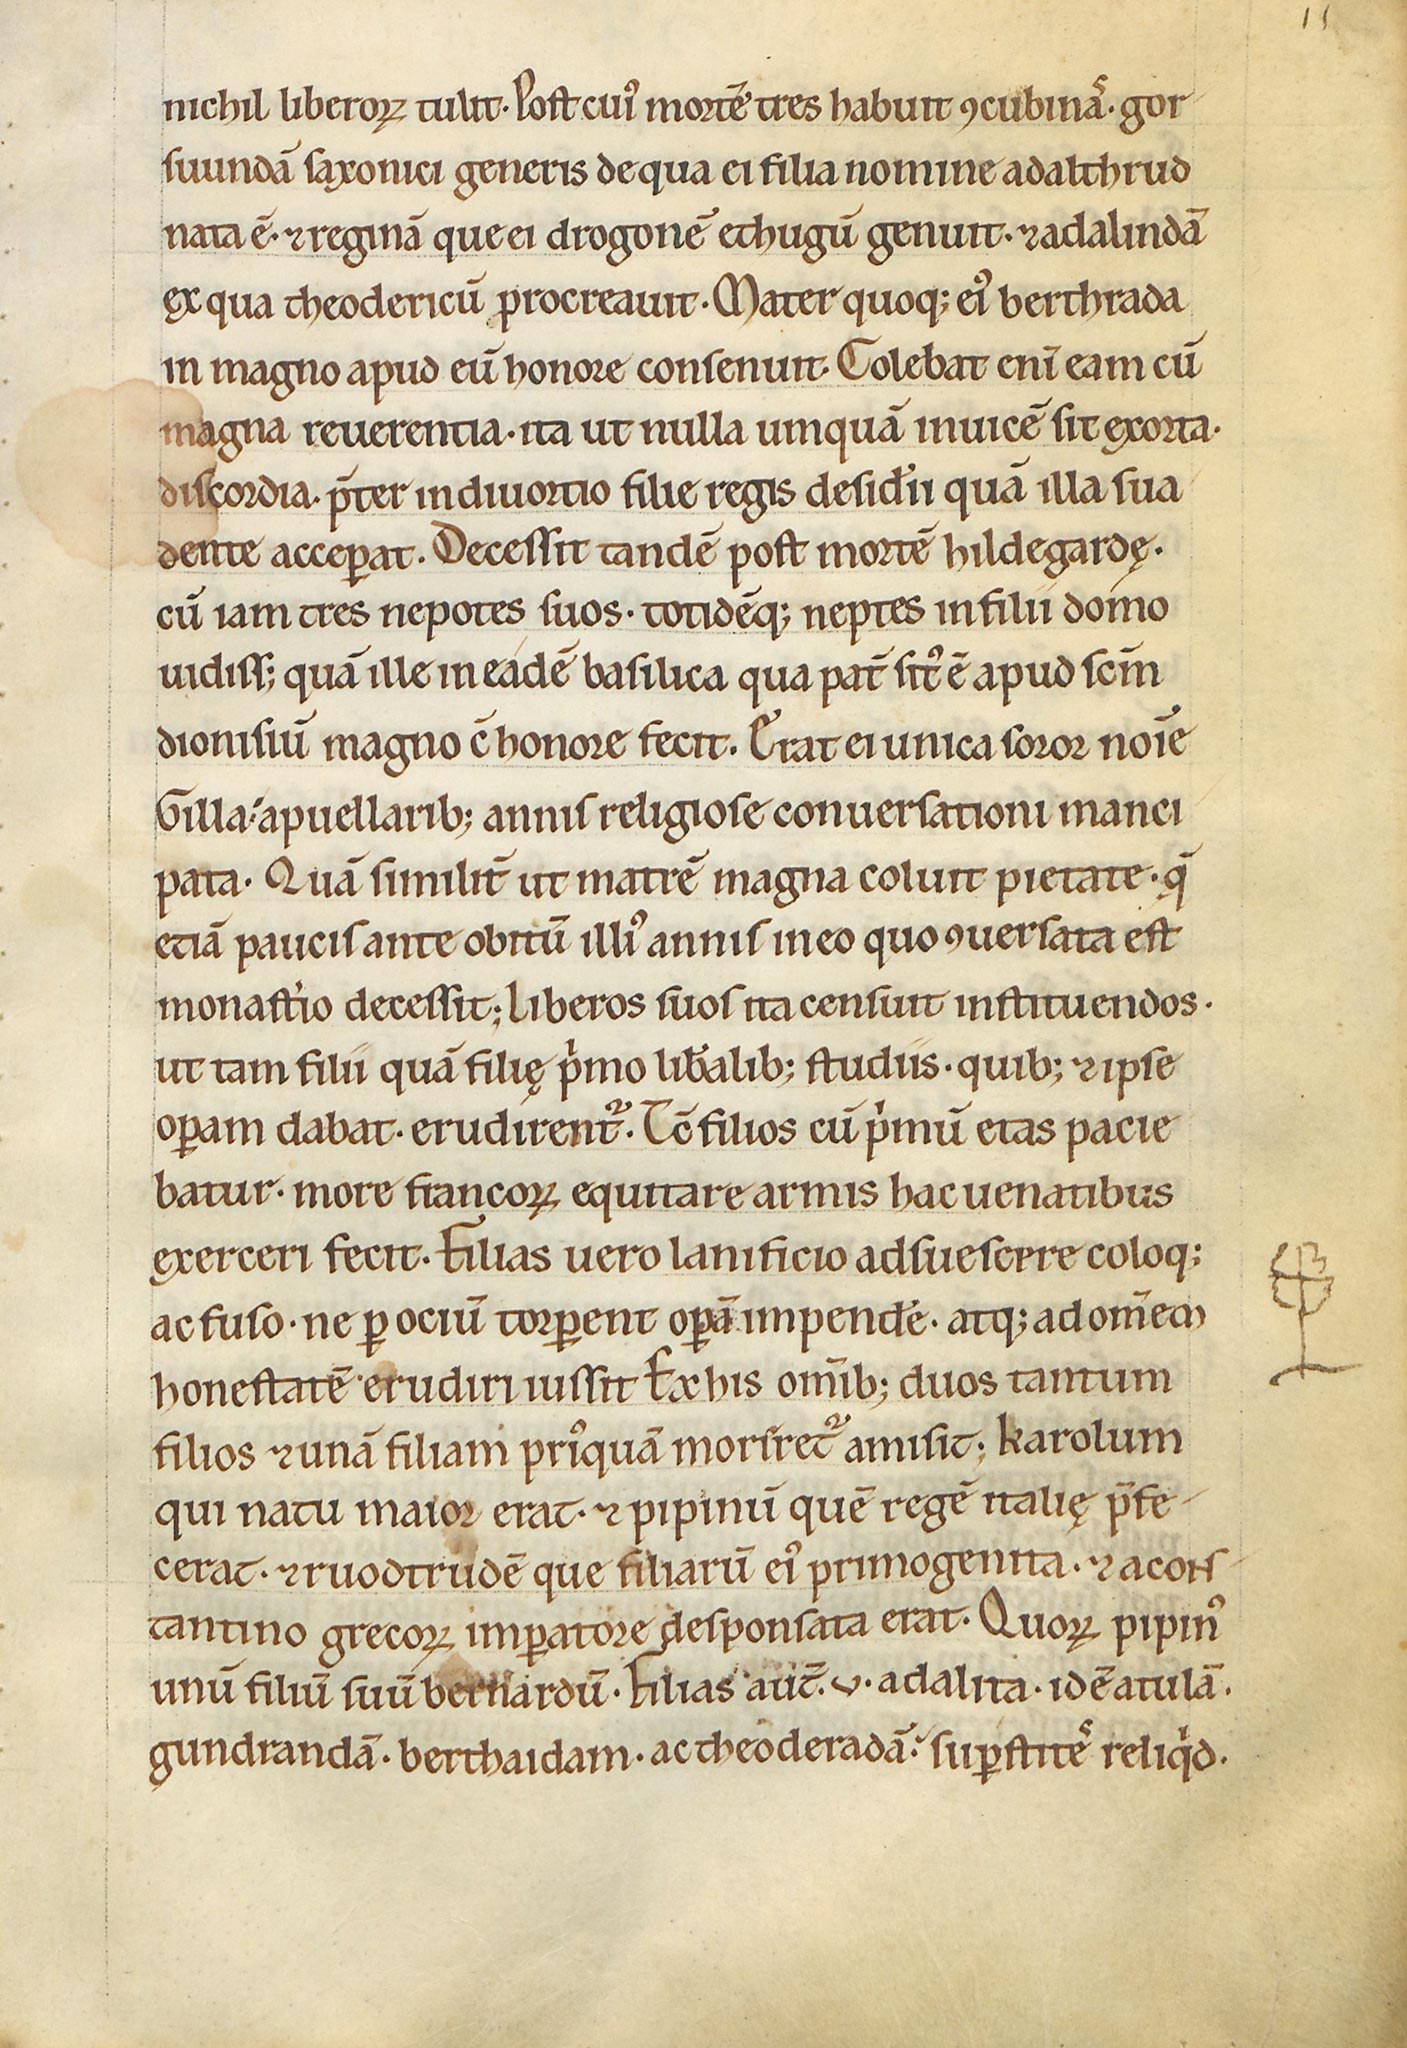 11
nichil liberoꝝ tulit. Post cuiꝰ mortē tres habuit ꝯcubinaͣs. gor
suundā saxonici generis de qua ei filia nomine adalthrud
nata ē. ⁊ reginā que ei drogonē et hugū genuit. ⁊ adalindā
ex qua theodericū procreauit. Mater quoq; eiꝰ berthrada
in magno apud eū honore consenuit. Colebat eni̅ eam cū
magna reuerentia. ita ut nulla umquā inuicē sit exorta.
discordia. p̄ter in diuortio filie regis desid̓ii quā illa sua
dente acceꝑat. Decessit tandē post mortē hildegardę.
cū iam tres nepotes suos. totidēq; neptes in filii domo
uidiss; quā ille in eādē basilica qua pat̄ sitꝰ ē apud sc̄m
dionisiū magno c̄ honore fecit. Erat ei unica soror noīe
Gilla. a puellarib; annis religiose conuersationi manci
pata. Quā similit̄ ut matrē magna coluit pietate. q̄
etiā paucis ante obitū illiꝰ annis in eo quo ꝯuersata est
monast̓io decessit; Liberos suos ita censuit instituendos.
ut tam filii quā filię p̓mo lib̓alib; studiis. quib; ⁊ ipse
oꝑam dabat. erudirent᷑. Tc̄ filios cū p̓mū etas pacie
batur. more francoꝝ equitare armis hac uenatibus
exerceri fecit. Filias uero lanificio adsuescere coloq;
ac fuso. ne ꝑ ociū torꝑent oꝑā impend̓e. atq; ad om̄em
honestatē erudiri iussit Ex his om̄ib; duos tantum
filios ⁊ unā filiam priꝰquā moriret᷑ amisit; karolum
qui natu maior erat. ⁊ pipinū quē regē italię p̄fe
cerat. ⁊ ruodtrudē que filiarū eiꝰ primogenita. ⁊ a cons
tantino grecoꝝ imꝑatore desponsata erat. Quoꝝ pipinꝰ
unū filiū suū bernardū. Filias aut̄. v. adalita. idē atulā.
gundrandā. berthaidam. ac theoderadā. suꝑstitēs reliq̓d.